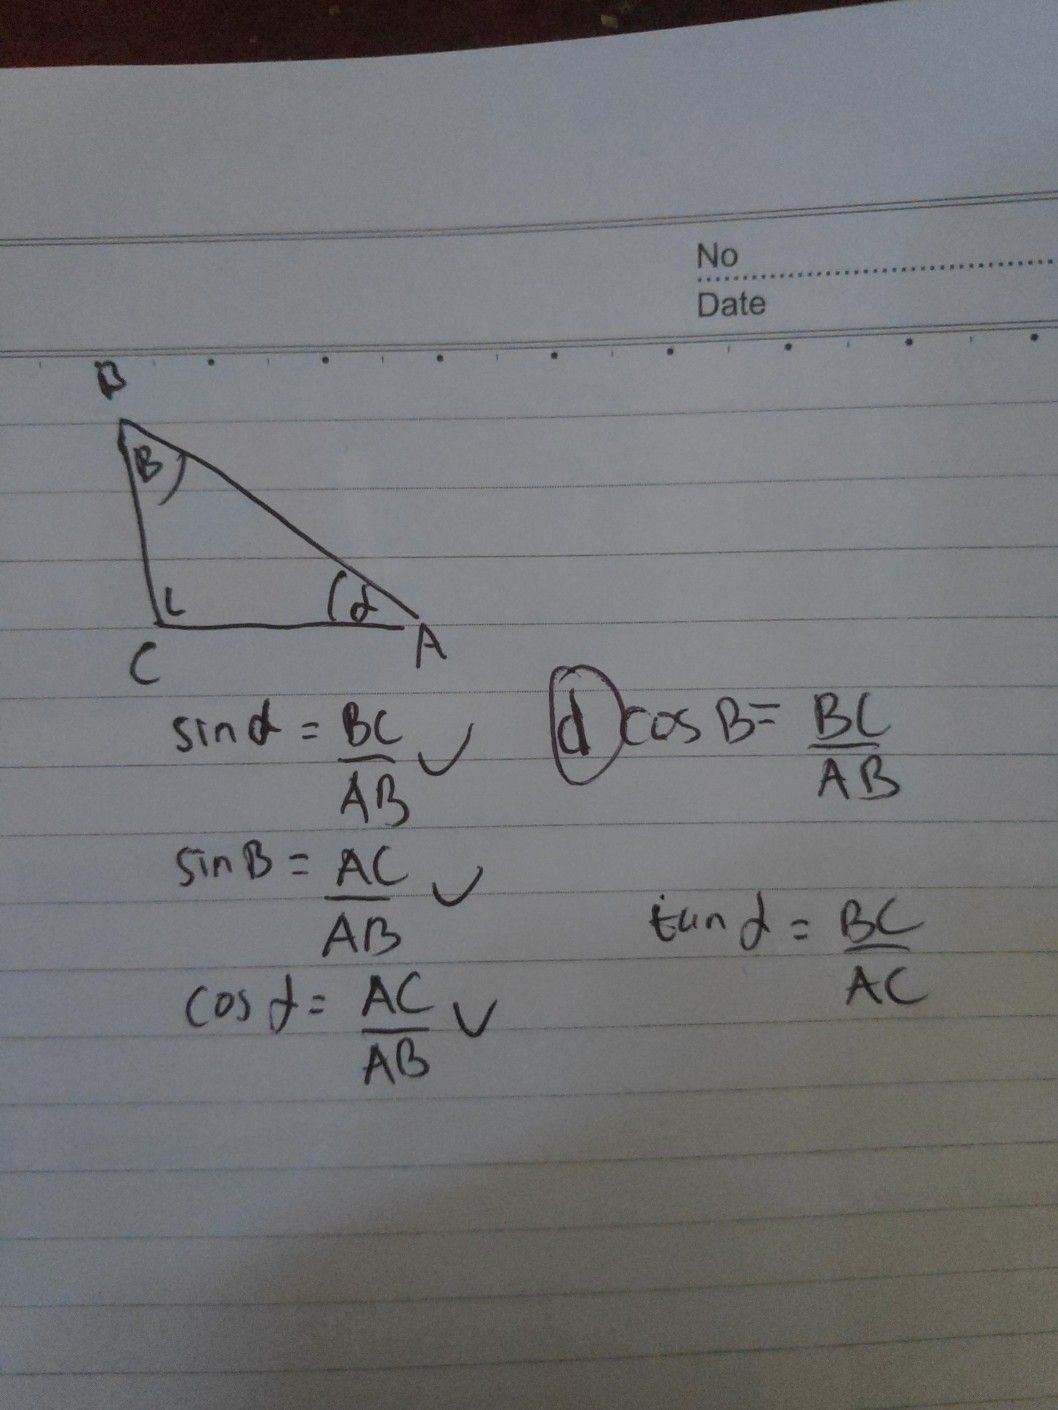 No
Date
B
B
α
C
A
sin α = BC/AB ✓
sin B = AC/AB ✓
cos α = AC/AB ✓
d cos B = BC/AB
tan α = BC/AC